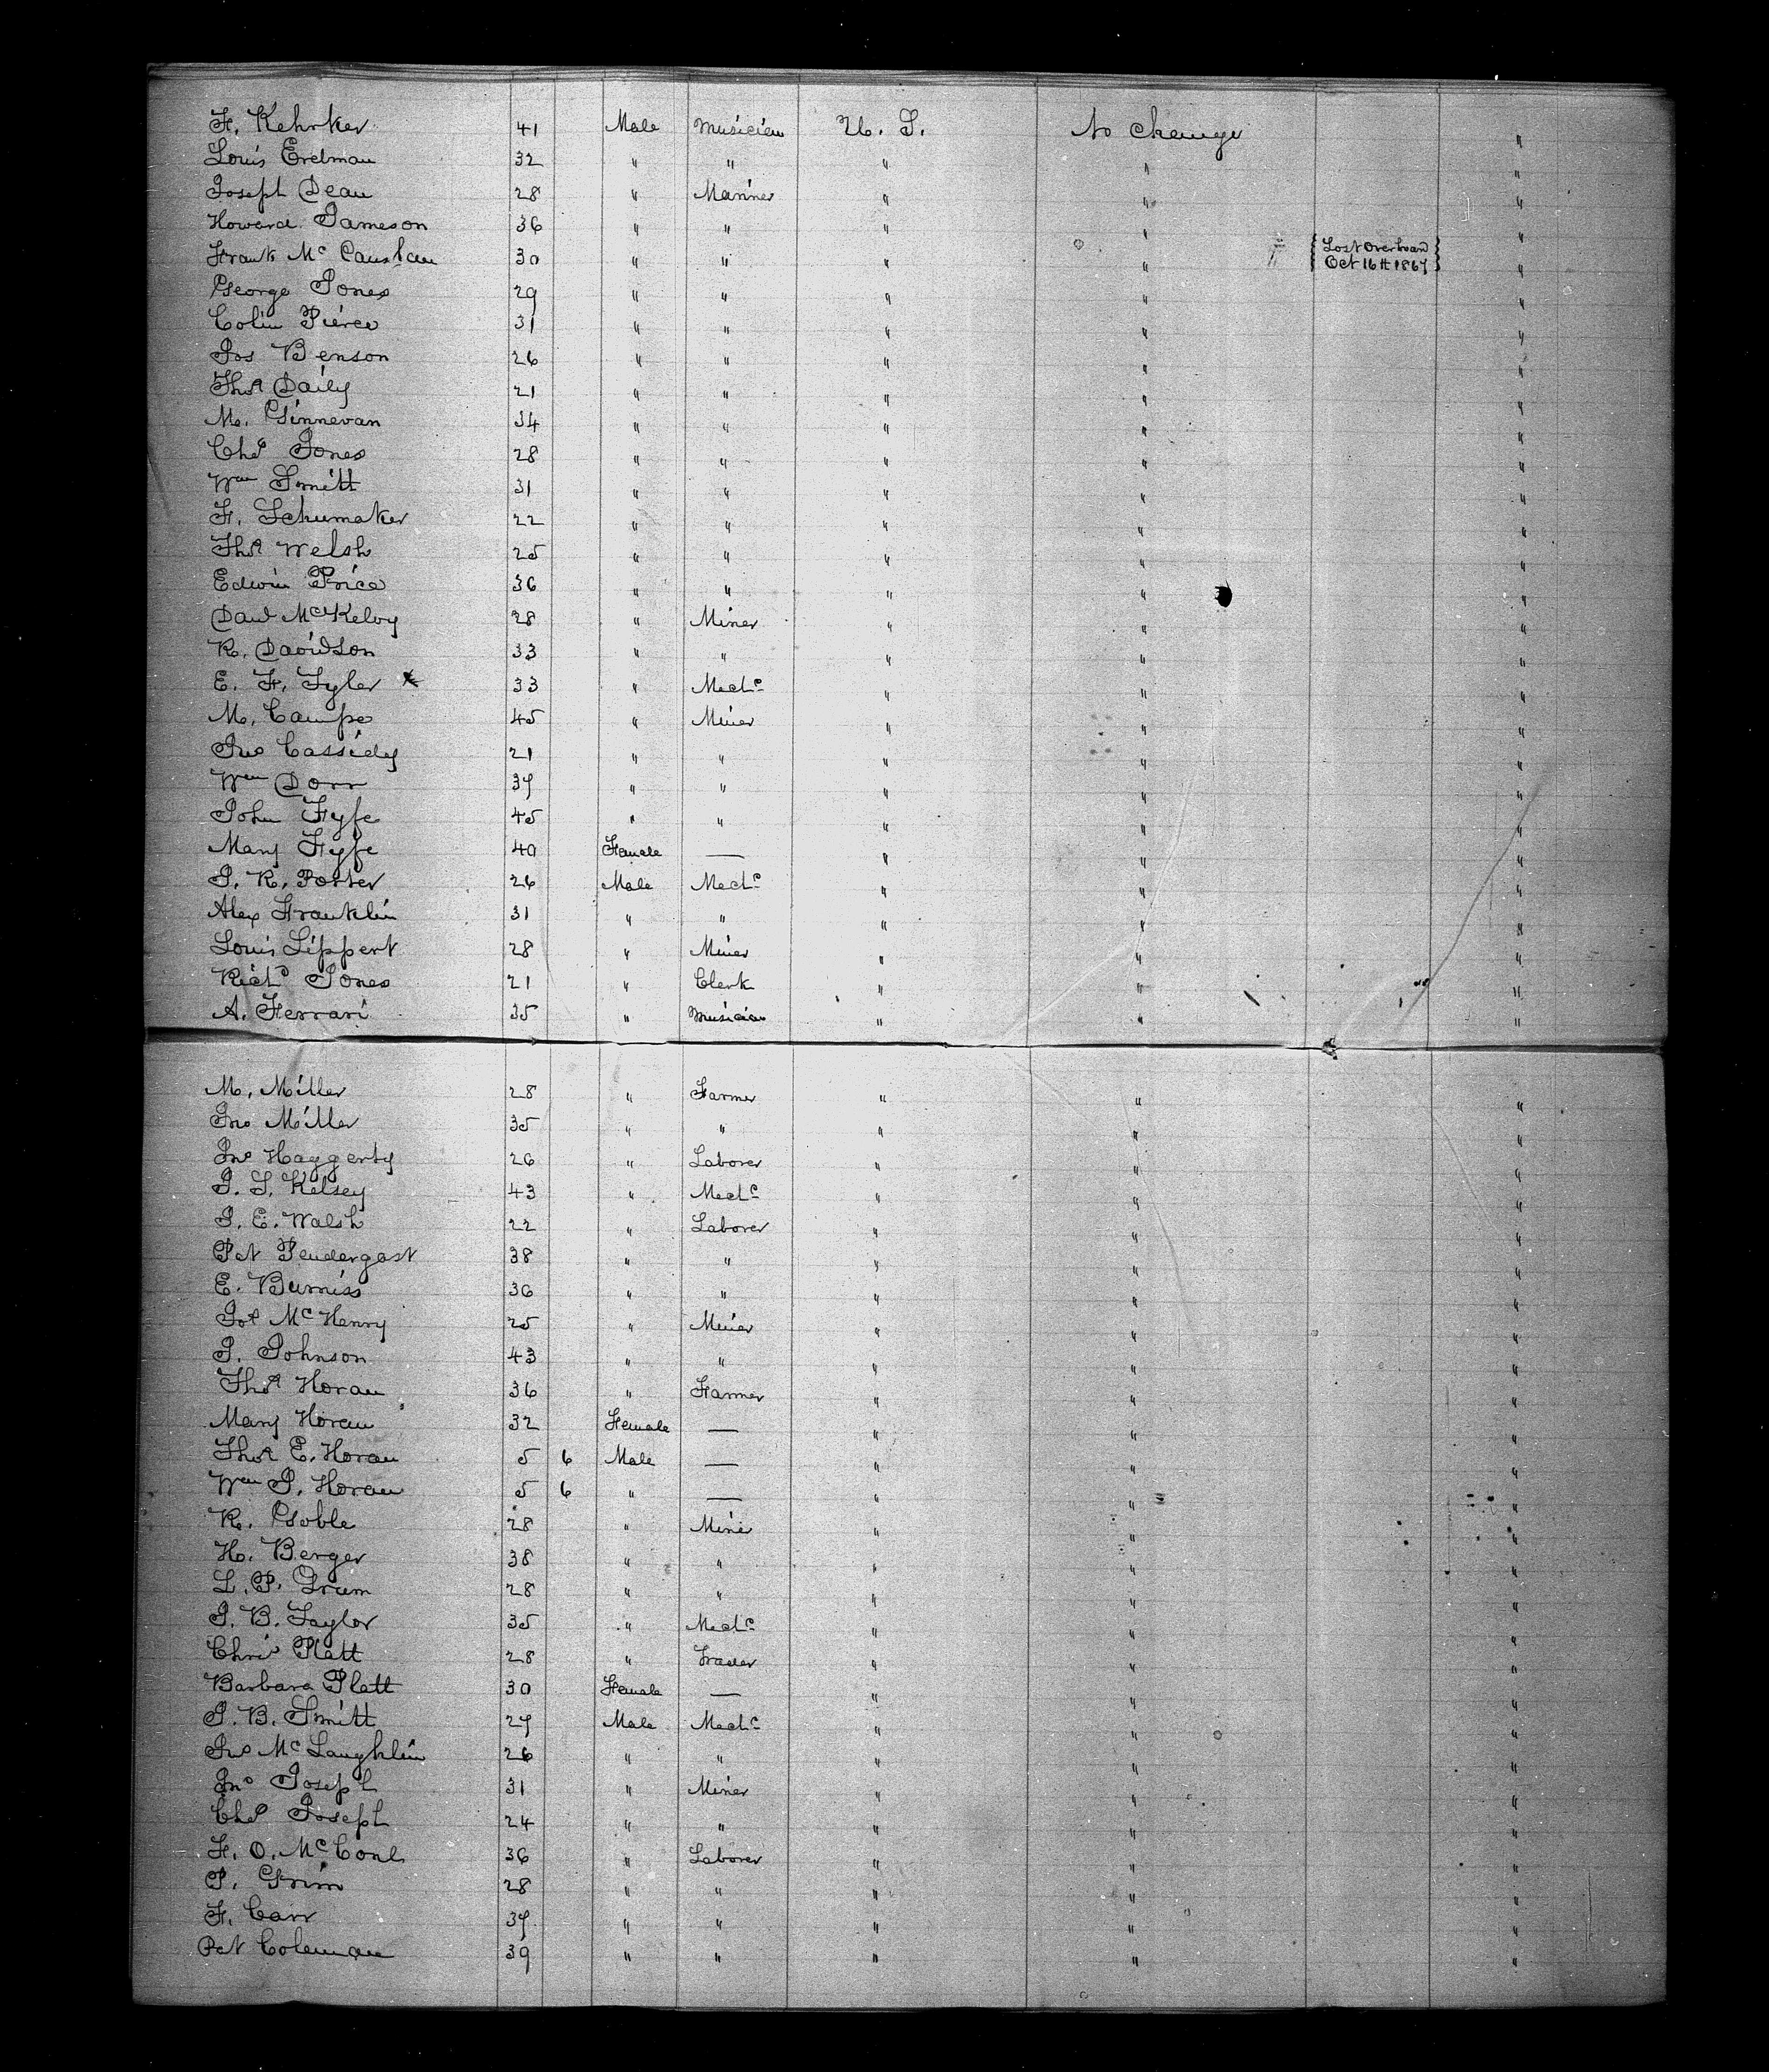 F. Kehrker 41 Male Musician U. S. No change "
Louis Erdman 32 " " " " "
Joseph Dean 28 " Mariner " " "
Howard Jameson 36 " " " " "
Frank Mc Causlan 30 " " " " Lost Overboard Oct 16th 1867 "
George Jones 29 " " " " "
Colin Pierce 31 " " " " "
Jos Benson 26 " " " " "
Thos Daily 21 " " " " "
M. Ginnevan 34 " " " " "
Chs Jones 28 " " " " "
Wm Smith 31 " " " " "
F. Schumaker 22 " " " " "
Thos Welsh 25 " " " " "
Edwin Price 36 " " " " "
Davd McKelvy 28 " Miner " " "
R. Davidson 33 " " " " "
E. F. Tyler x 33 " Mechc " " "
M. Campe 45 " Miner " " "
Jno Cassidy 21 " " " " "
Wm Dorr 37 " " " " "
John Fyfe 45 " " " " "
Mary Fyfe 40 Female — " " "
J. R. Potter 26 Male Mechc " " "
Alex Franklin 31 " " " " "
Louis Lippert 28 " Miner " " "
Richd Jones 21 " Clerk " " "
A. Ferrari 35 " Musician " " "
M. Miller 28 " Farmer " " "
Jno Miller 35 " " " " "
Jno Haggerty 26 " Laborer " " "
J. S. Kelsey 43 " Mechc " " "
J. E. Walsh 22 " Laborer " " "
Pat Pendergast 38 " " " " "
E. Burniss 36 " " " " "
Jos McHenry 25 " Miner " " "
J. Johnson 43 " " " " "
Thos Horan 36 " Farmer " " "
Mary Horan 32 Female — " " "
Thos E. Horan 5 6 Male — " " "
Wm J. Horan 5 6 " — " " "
R. Goble 28 " Miner " " "
H. Berger 38 " " " " "
L. P. Drum 28 " " " " "
J. B. Taylor 35 " Mechc " " "
Chris Platt 28 " Trader " " "
Barbara Platt 30 Female — " " "
J. B. Smith 27 Male Mechc " " "
Jno McLaughlin 26 " " " " "
Jno Joseph 31 " Miner " " "
Chs Joseph 24 " " " " "
F. O. McConl 36 " Laborer " " "
P. Grim 28 " " " " "
F. Carr 37 " " " " "
Pat Coleman 39 " " " " "